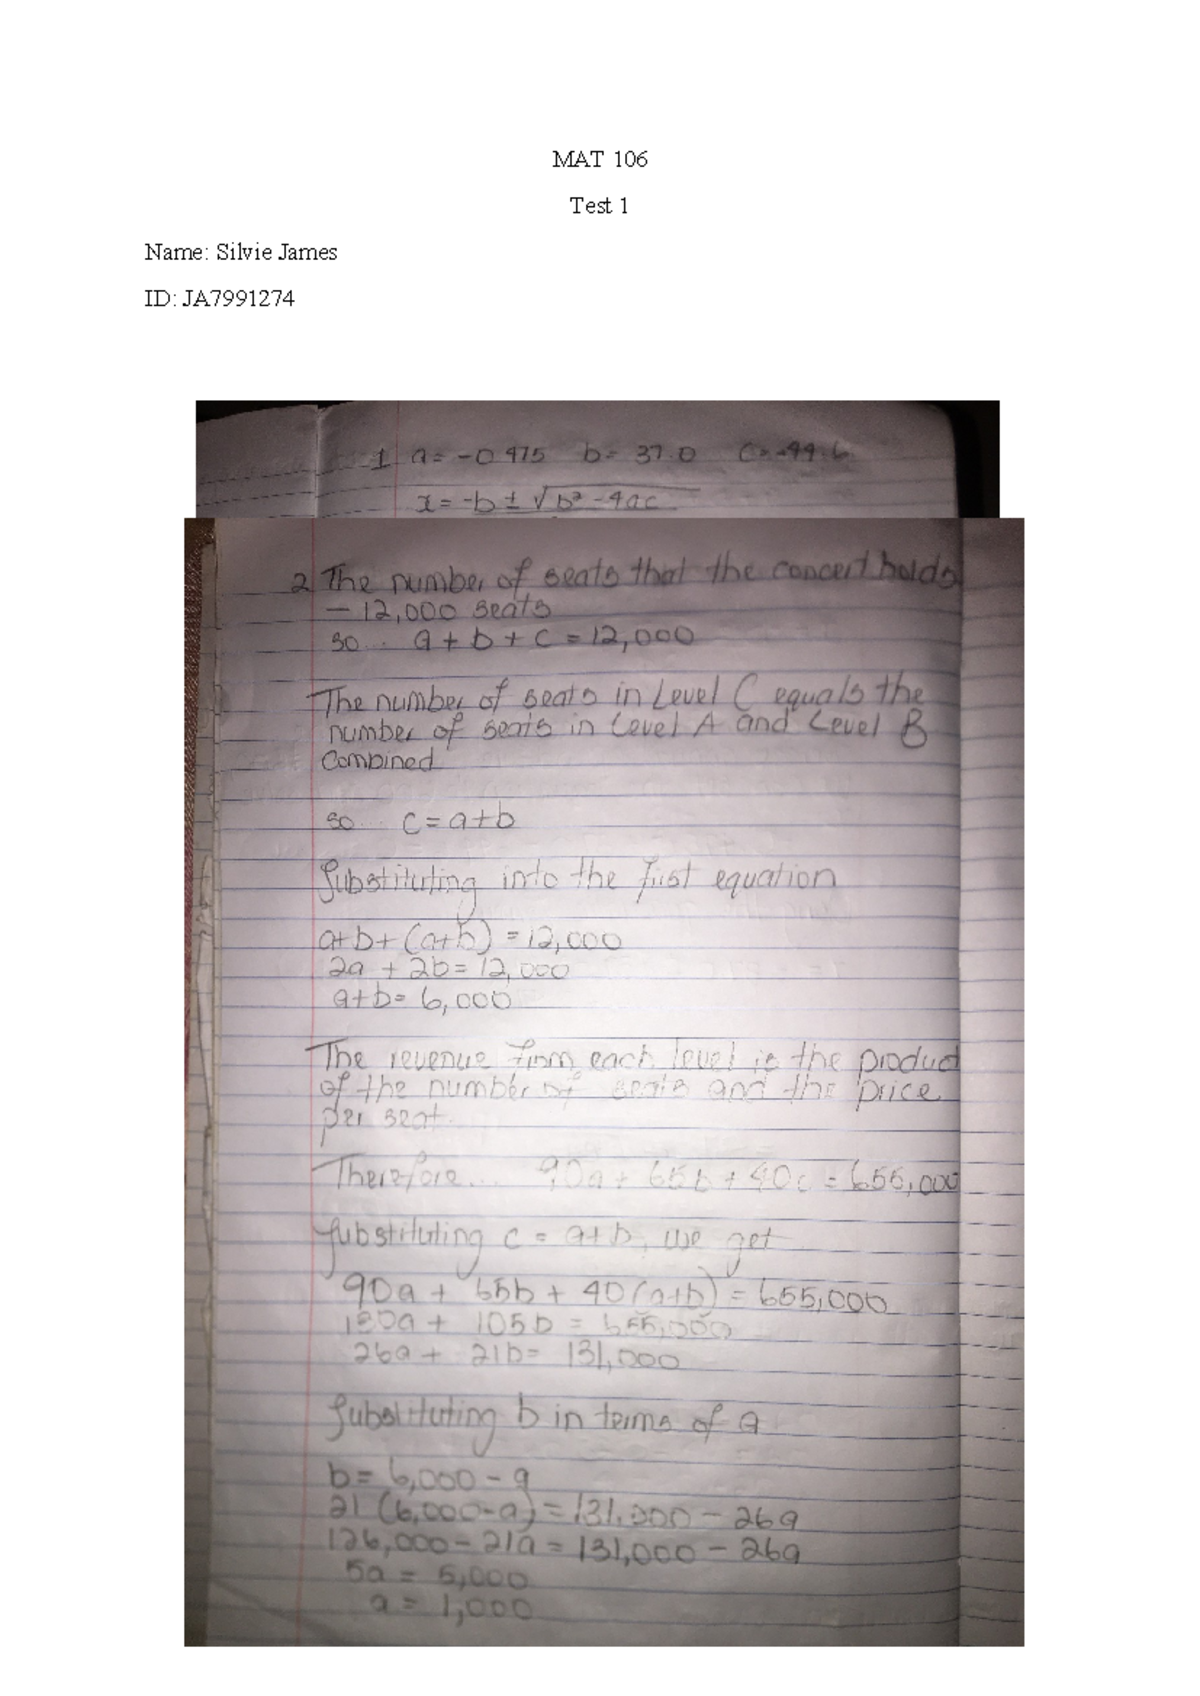 MAT 106
Test 1
Name: Silvie James
ID: JA7991274
1 a= -0.475 b= 37.0 c= -44.6
x = -b ± √b² - 4ac
2 The number of seats that the concert holds
— 12,000 seats
so... a + b + c = 12,000
The number of seats in Level C equals the
number of seats in Level A and Level B
Combined
so... c = a+b
Substituting into the first equation
a+b+(a+b) = 12,000
2a + 2b = 12,000
a+b= 6,000
The revenue from each level is the product
of the number of seats and the price
per seat.
Therefore... 90a + 65b + 40c = 655,000
Substituting c = a+b, we get
90a + 65b + 40(a+b) = 655,000
130a + 105b = 655,000
26a + 21b = 131,000
Substituting b in terms of a
b= 6,000 - a
21 (6,000-a) = 131,000 - 26a
126,000 - 21a = 131,000 - 26a
5a = 5,000
a = 1,000